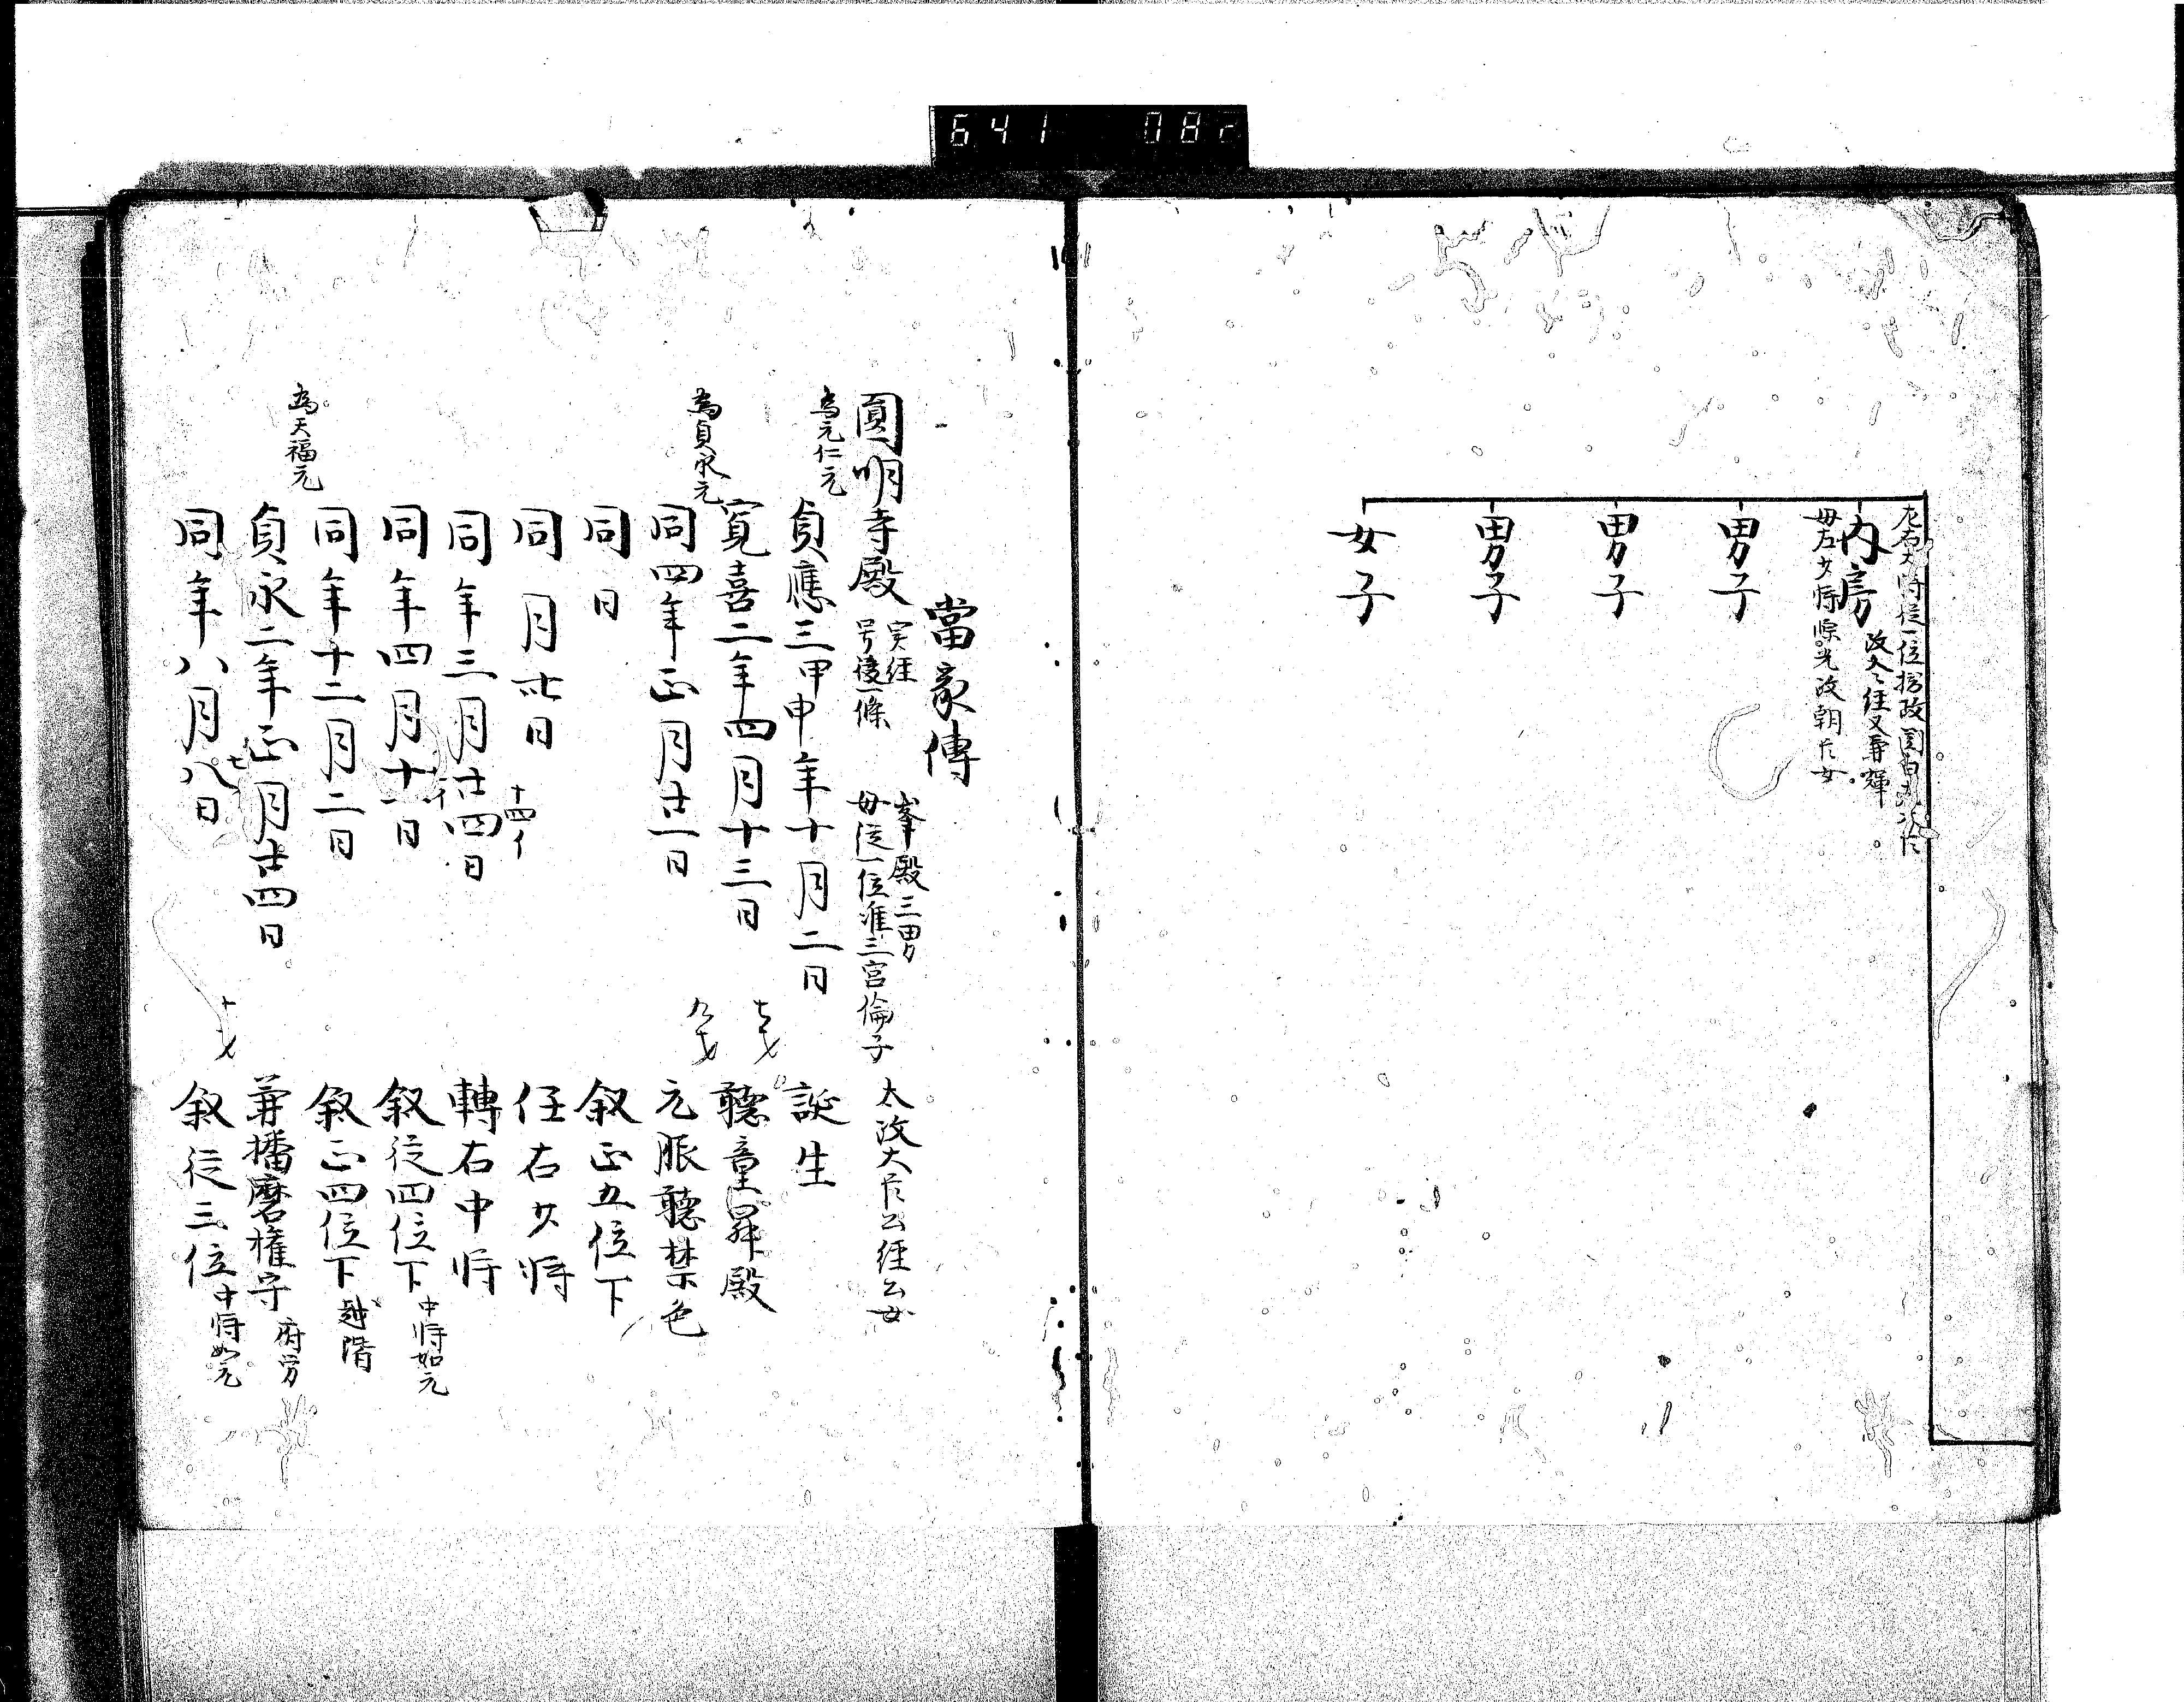 641 08r
左右大将従一位摂政関白左大臣
内房
改久々経又尋輝
母左少将宗光改朝臣女
男子
男子
男子
女子
當家傳
圓明寺殿 実経
号後一條
峯殿三男
母従一位准三宮倫子
太政大臣公経公女
為元仁元
貞應三甲申年十月二日 誕生
寛喜二年四月十三日 七才 聴童昇殿
為貞永元
同四年正月廿一日 九才 元服聴禁色
同日 叙正五位下
同月廿日 任右少将
十四イ
同年三月廿四日 轉右中将
同年四月十一日 叙従四位下 中将如元
同年十二月二日 叙正四位下 越階
為天福元
貞永二年正月廿四日 十才 兼播磨権守 府労
同年八月八日 叙従三位 中将如元
七イ